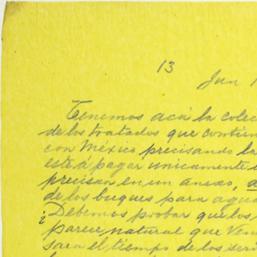 13
Jun 1
Tenemos acá la colec
de los tratados que contien
con México precisando la
este á pagar únicamente
precisan en un ansao, a
de los buques para agua
¿Debemos probar que los
parece natural que Ven
sara el tiempo de los